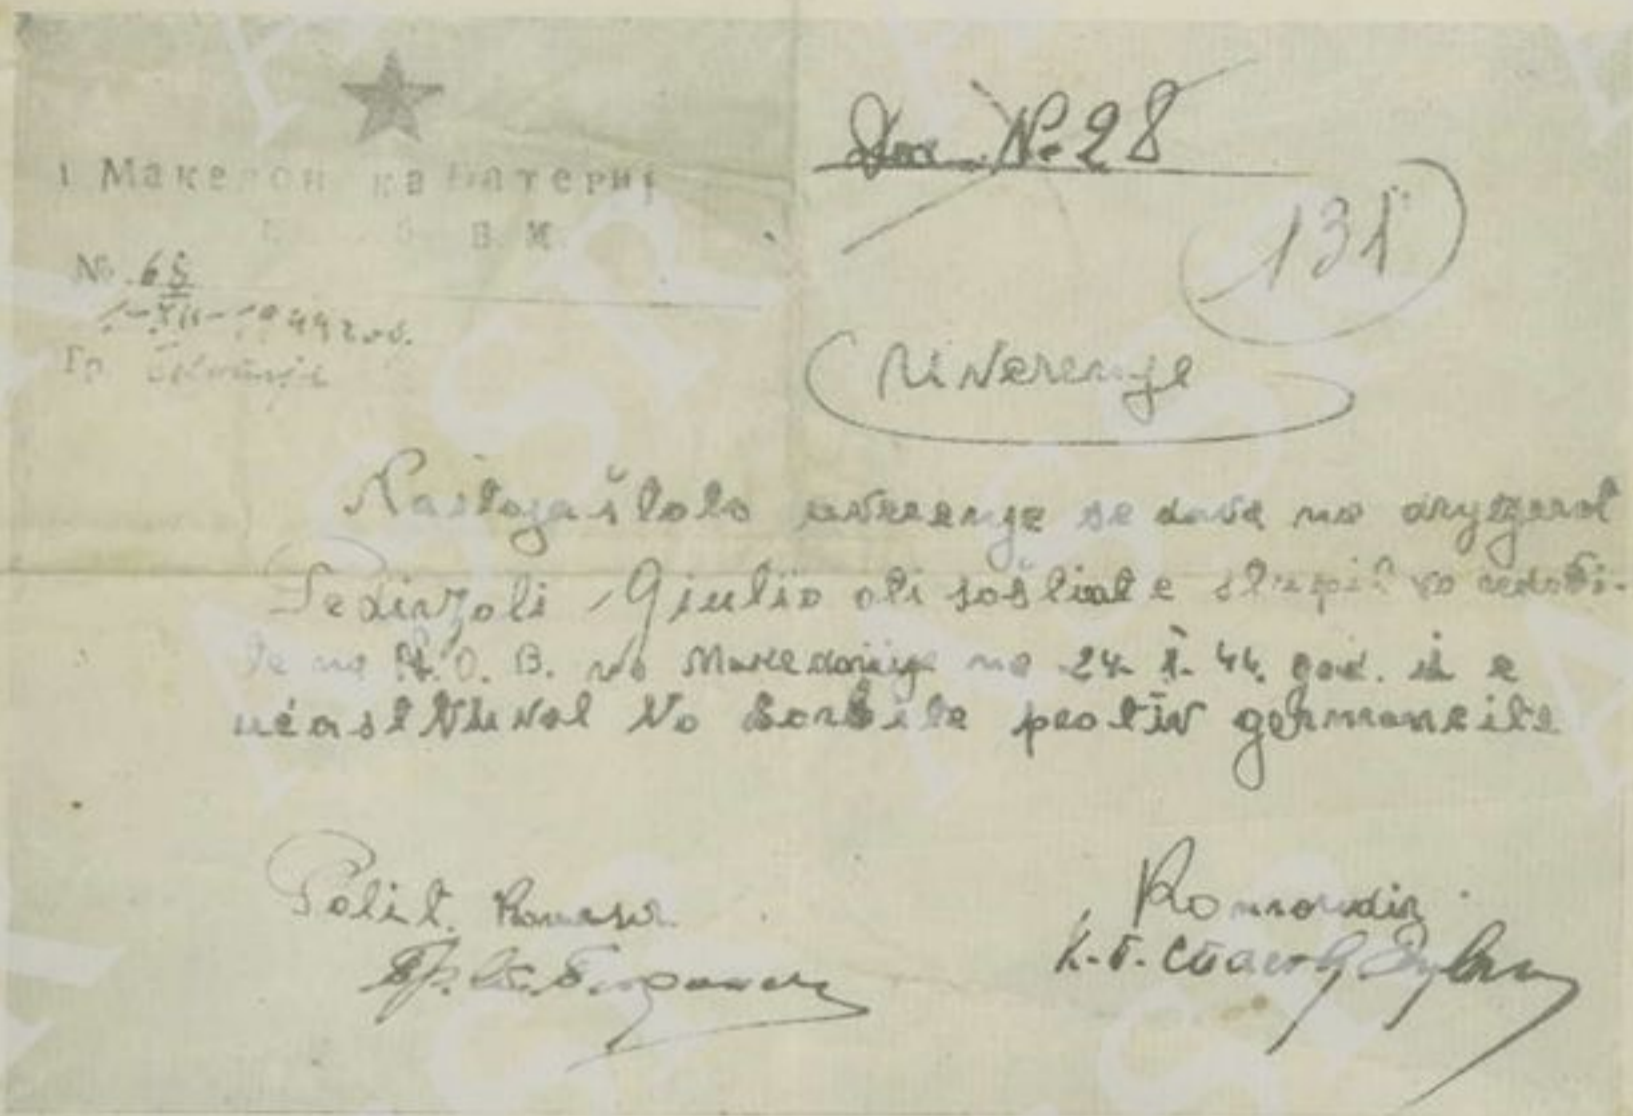 Док. № 28
131
1 Македонска Батерија
В. М.
№ 65
1-XII-1944 год.
Гр.
Uverenje
Nastojaštoto uverenje se dava na drugarot
Pedirzoli Giulio oti soštiot e stupil vo redovi-
te na N.O.B. vo Makedonija na 24. I. 44. god. i e
učastvuval vo borbite protiv germancite
Polit. Komesar
Komandir